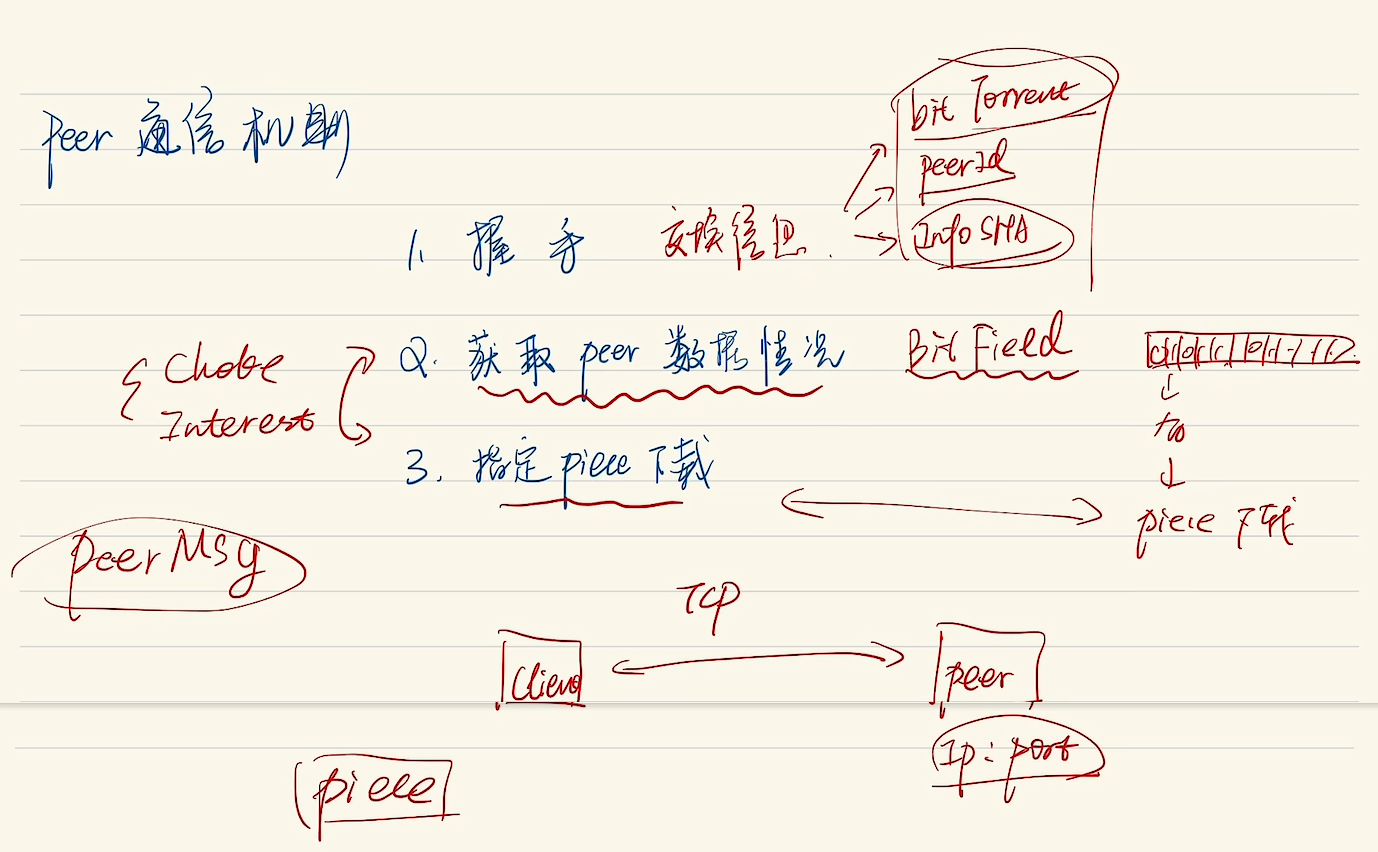 peer 通信机制
bit Torrent
peerId
InfoSHA
1. 握手 交换信息.
2. 获取 peer 数据情况 BitField
Choke
Interest
3. 指定 piece 下载
piece 下载
peerMsg
TCP
Client
peer
Ip: port
piece